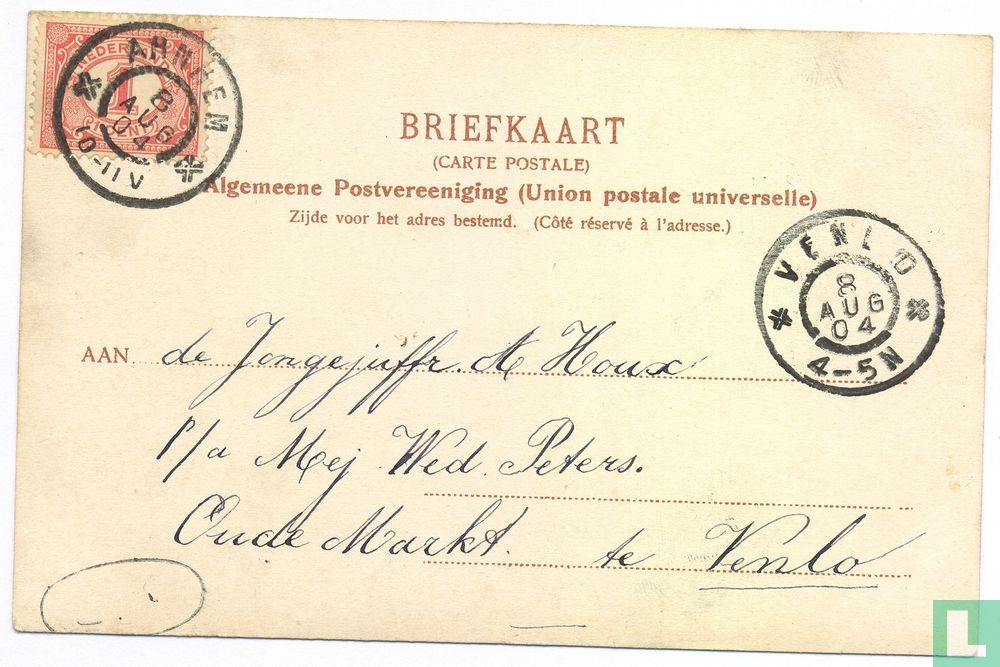 NEDERLAND
1
CENT
ARNHEM
8
AUG
04
10-11 V
BRIEFKAART
(CARTE POSTALE)
Algemeene Postvereeniging (Union postale universelle)
Zijde voor het adres bestemd. (Côté réservé à l'adresse.)
VENLO
8
AUG
04
4-5N
AAN de Jongejuffr. A Houx
p/a Mej Wed. Peters.
Oude Markt. te Venlo
L